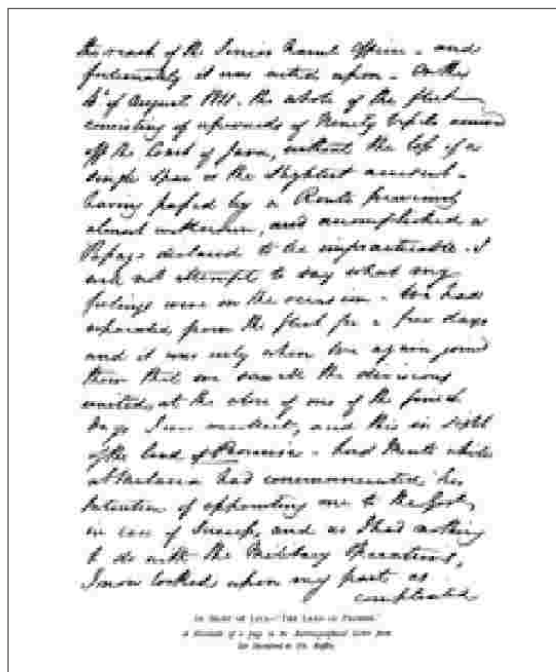 the reach of the Senior Naval Officer - and
fortunately it was acted upon - On the
4th of August 1811 - the whole of the fleet
consisting of upwards of Ninety Vessels
off the Coast of Java, without the loss of a
single Spar or the slightest accident -
having passed by a Route previously
almost unknown, and accomplished a
Passage declared to be impracticable - I
will not attempt to say what my
feelings were on the occasion - We had
separated from the fleet for a few days
and it was only when we again joined
them that we saw all the divisions
united, at the close of one of the finest
days I ever, and this in sight
of the land of Promise - Lord Minto while
at Malacca had communicated his
intention of appointing me to the Govt,
in case of Success, and as I had nothing
to do with the Military Operations,
I now looked upon my part as
completed
IN SIGHT OF "THE LAND OF PROMISE"
A Facsimile of a Page in the Autobiographical Letter from
Raffles